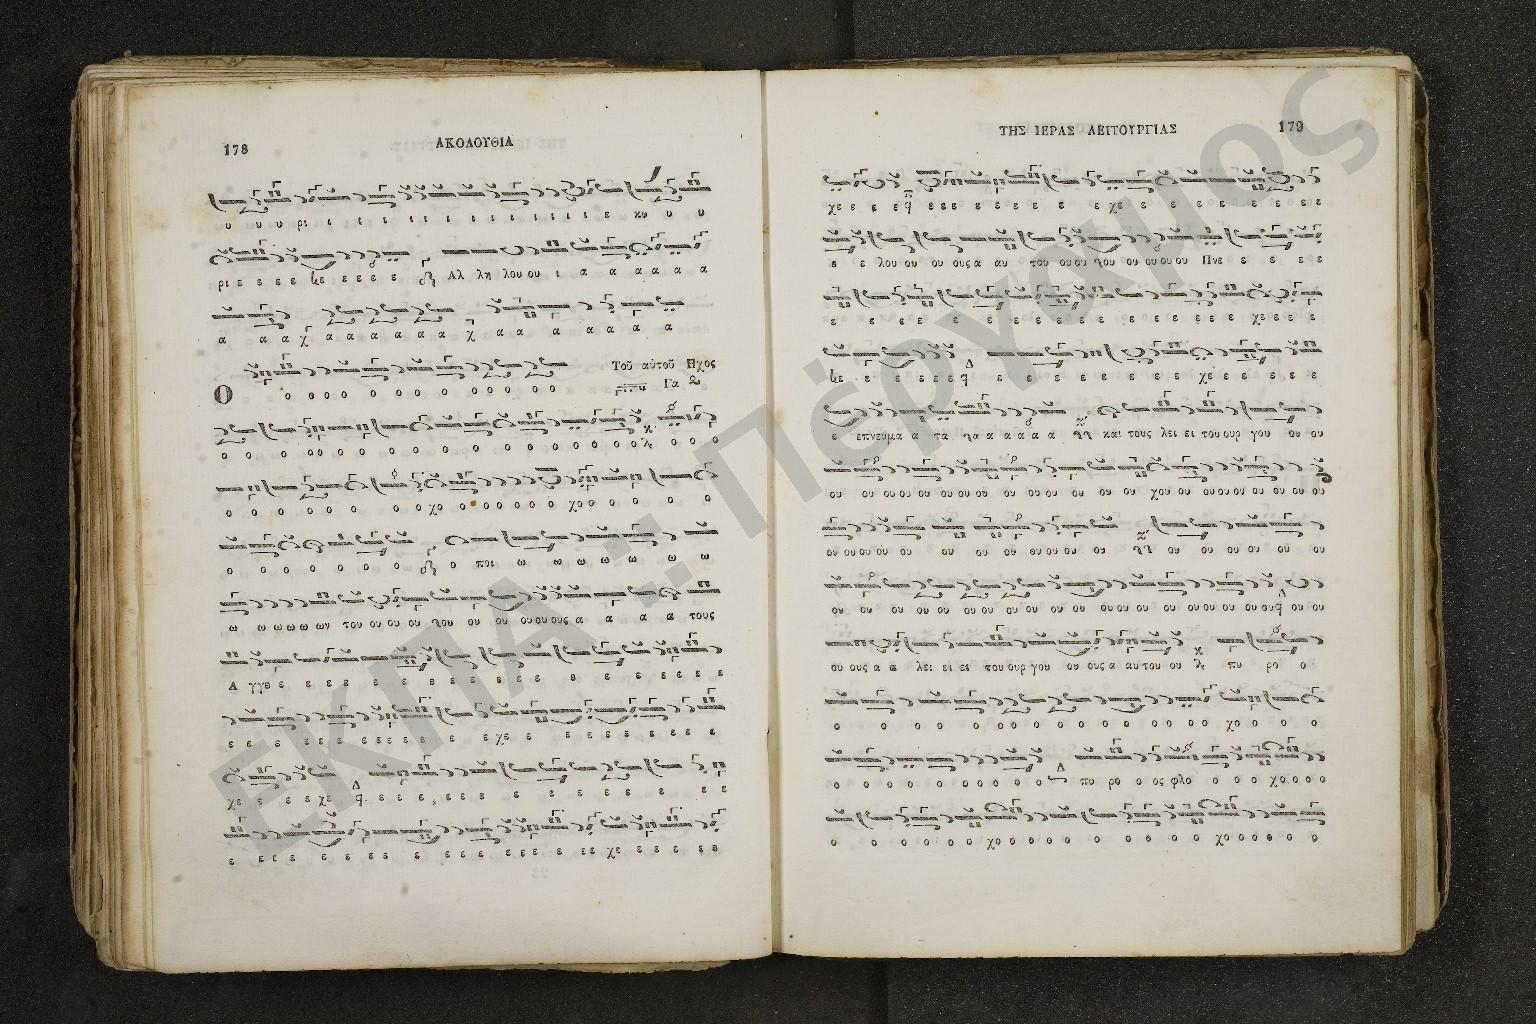 178
ΑΚΟΛΟΥΘΙΑ
υ υ υ ρι ι ι ι ι ι ι ι ι ι ι ι ι ι ι ε κυ υ υ
ρι ε ε ε ε ε ε ε ε ε Αλ λη λου ου ι α α α α α α
α α α χ α α α α α α α χ α α α α α α α
Τοῦ αὐτοῦ Ηχος
Ο ο ο ο ο ο ο ο ο ο ο ο ο ο Γα
ο ο ο ο ο ο ο ο ο ο ο ο ο ο ο ο ο ο ο ο
ο ο ο ο ο ο χο ο ο ο ο ο ο χο ο ο ο ο ο
ο ο ο ο ο ο ο ο ποι ω ω ω ω ω ω ω
ω ω ω ω ω ων του ου ου ου ου ου ου ου ου ους α α α α τους
Α γγε ε ε ε ε ε ε ε ε ε ε ε ε ε ε ε ε ε
ε ε ε ε ε ε ε ε ε ε ε ε χε ε ε ε ε ε ε ε ε
χε ε ε ε χε ε ε ε ε ε ε ε ε ε ε ε ε ε
ε ε ε ε ε ε ε ε ε ε ε ε ε ε ε ε χε ε ε ε ε
ΤΗΣ ΙΕΡΑΣ ΛΕΙΤΟΥΡΓΙΑΣ
179
χε ε ε ε ε ε ε ε ε ε ε ε ε χε ε ε ε ε ε ε ε ε
ε ε λου ου ου ους α αυ του ου ου ου ου ου ου ου Πνε ε ε ε ε
ε ε ε ε ε ε ε ε ε ε ε ε ε ε ε ε ε χε ε ε ε
ε ε ε ε ε ε ε ε ε ε ε ε ε ε χε ε ε ε ε
ε επνευμα α τα α α α α α και τους λει ει του ουρ γου ου ου
ου ου ου ου ου ου ου ου ου ου ου ου ου ου χου ου ου ου ου ου ου ου ου
ου ου ου ου ου ου ου ου ου ου ου ου ου ου ου ου ου ου
ου ου ου ου ου ου ου ου ου ου ου ου ου ου ου ου ου ου ου ου ου ου ου
ου ους α α λει ει ει του ουρ γου ου ους α αυ του ου πυ ρο ο
ο ο ο ο ο ο ο ο ο ο ο ο ο ο ο χο ο ο ο
ο ο ο ο ο ο ο ο ο ο ο πυ ρο ο ος φλο ο ο ο χο ο ο ο
ο ο ο ο ο ο χο ο ο ο ο ο ο ο ο ο χο ο ο ο ο ο
ΕΚΠΑ :: Πέργαμος